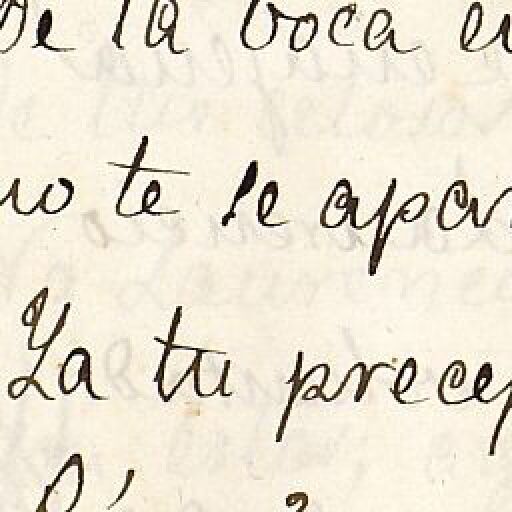 De la boca en
no te se apar
Ya tu precep